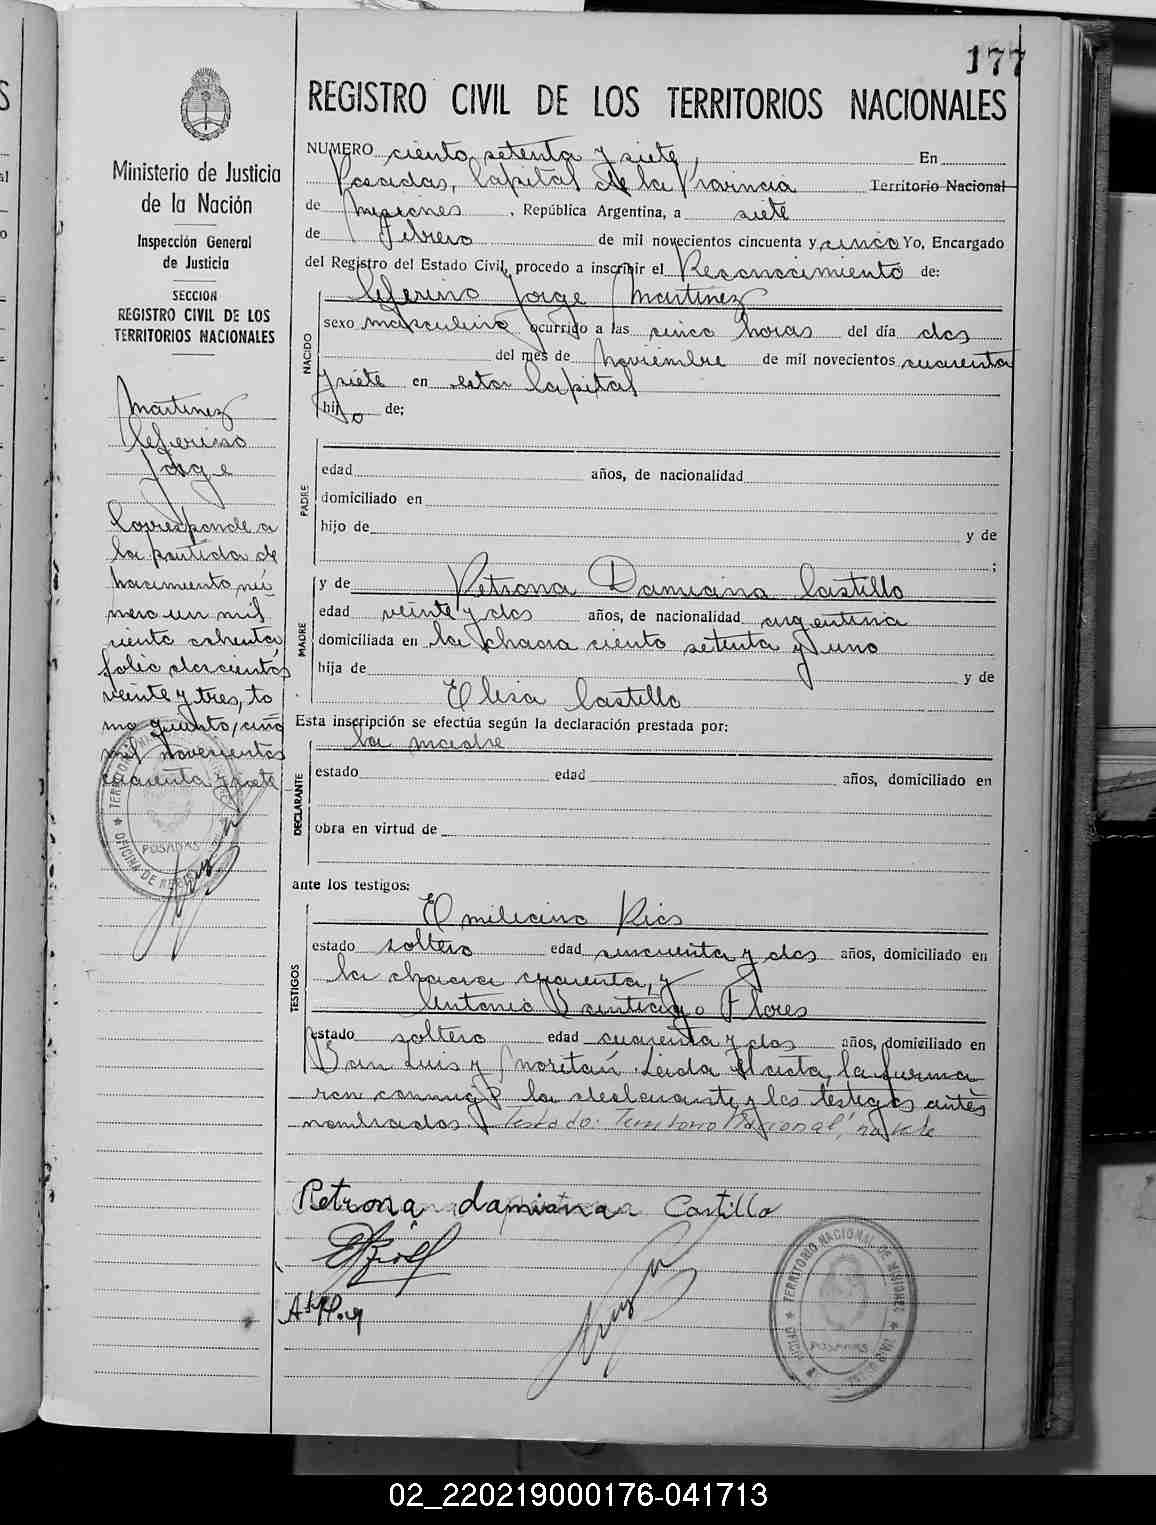 177
REGISTRO CIVIL DE LOS TERRITORIOS NACIONALES
Ministerio de Justicia
de la Nación
Inspección General
de Justicia
SECCION
REGISTRO CIVIL DE LOS
TERRITORIOS NACIONALES
Martinez
Ceferino
Jorge
Corresponde a
la partida de
nacimiento nú
mero un mil
ciento ochenta
folio doscientos
veinte y tres, to
mo quinto, año
mil novecientos
cuarenta y siete
POSADAS
NUMERO ciento setenta y siete, En
Posadas, Capital de la Provincia Territorio Nacional
de Misiones, República Argentina, a siete
de febrero de mil novecientos cincuenta y cinco Yo, Encargado
del Registro del Estado Civil, procedo a inscribir el Reconocimiento de:
Ceferino Jorge Martinez
NACIDO
sexo masculino ocurrido a las cinco horas del día dos
del mes de noviembre de mil novecientos cuarenta
y siete en esta Capital
hijo de:
PADRE
edad años, de nacionalidad
domiciliado en
hijo de y de
;
MADRE
y de Petrona Damiana Castillo
edad veinte y dos años, de nacionalidad argentina
domiciliada en la chacra ciento setenta y uno
hija de y de
Elisa Castillo
Esta inscripción se efectúa según la declaración prestada por:
la madre
DECLARANTE
estado edad años, domiciliado en
obra en virtud de
ante los testigos:
TESTIGOS
Emiliano Rios
estado soltero edad cincuenta y dos años, domiciliado en
la chacra cuarenta, y
Antonio Santiago Flores
estado soltero edad cuarenta y dos años, domiciliado en
San Luis y Moritán. Leida el acta, la firma
ron conmigo la declarante y los testigos antes
nombrados. Testado: Territorio Nacional, no vale
Petrona damiana Castillo
TERRITORIO NACIONAL DE MISIONES
POSADAS
02_220219000176-041713